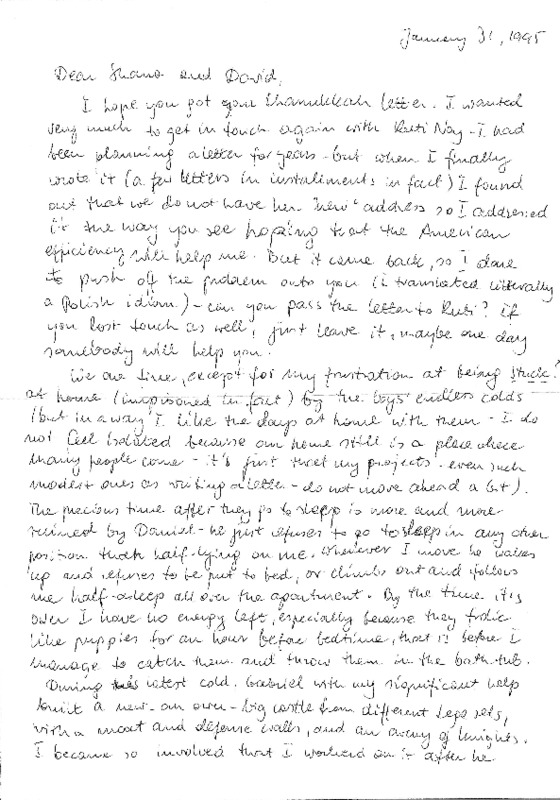 January 31, 1995
Dear Shana and David,
I hope you got your Channukkah letter. I wanted
very much to get in touch again with Ruti Noy - I had
been planning a letter for years - but when I finally
wrote it (a few letters in installments in fact) I found
out that we do not have her "new" address so I addressed
it the way you see hoping that the American
efficiency will help me. But it came back, so I dare
to push off the problem onto you (I translated litterally
a Polish idiom) - can you pass the letter to Ruti? If
you lost touch as well, just leave it, maybe one day
somebody will help you.
We are fine, except for my frustration at being stuck
at home (imprisoned in fact) by the boys' endless colds
(but in a way I like the days at home with them - I do
not feel isolated because our home still is a place where
many people come - it's just that my projects - even such
modest ones as writing a letter - do not move ahead a bit).
The precious time after they go to sleep is more and more
ruined by Daniel - he just refuses to go to sleep in any other
position than half-lying on me. Wherever I move he wakes
up and refuses to be put to bed, or climbs out and follows
me half-asleep all over the apartment. By the time it's
over I have no energy left, especially because they frolic
like puppies for an hour before bedtime, that is before I
manage to catch them and throw them in the bath-tub.
During latest cold Gabriel with my significant help
built a new - our own - big castle from different Lego sets,
with a moat and defense walls, and an army of knights.
I became so involved that I worked on it after he